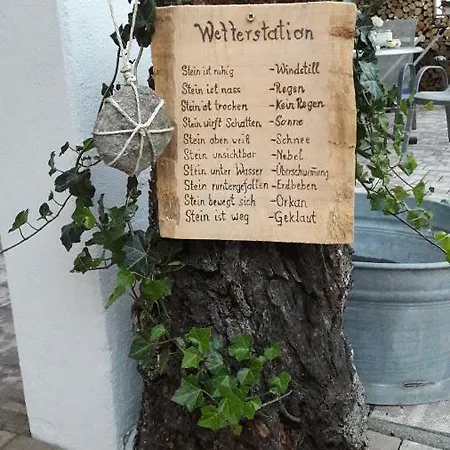 Wetterstation
Stein ist ruhig - Windstill
Stein ist nass - Regen
Stein ist trocken - Kein Regen
Stein wirft Schatten - Sonne
Stein oben weiß - Schnee
Stein unsichtbar - Nebel
Stein unter Wasser - Überschwemmung
Stein runtergefallen - Erdbeben
Stein bewegt sich - Orkan
Stein ist weg - Geklaut